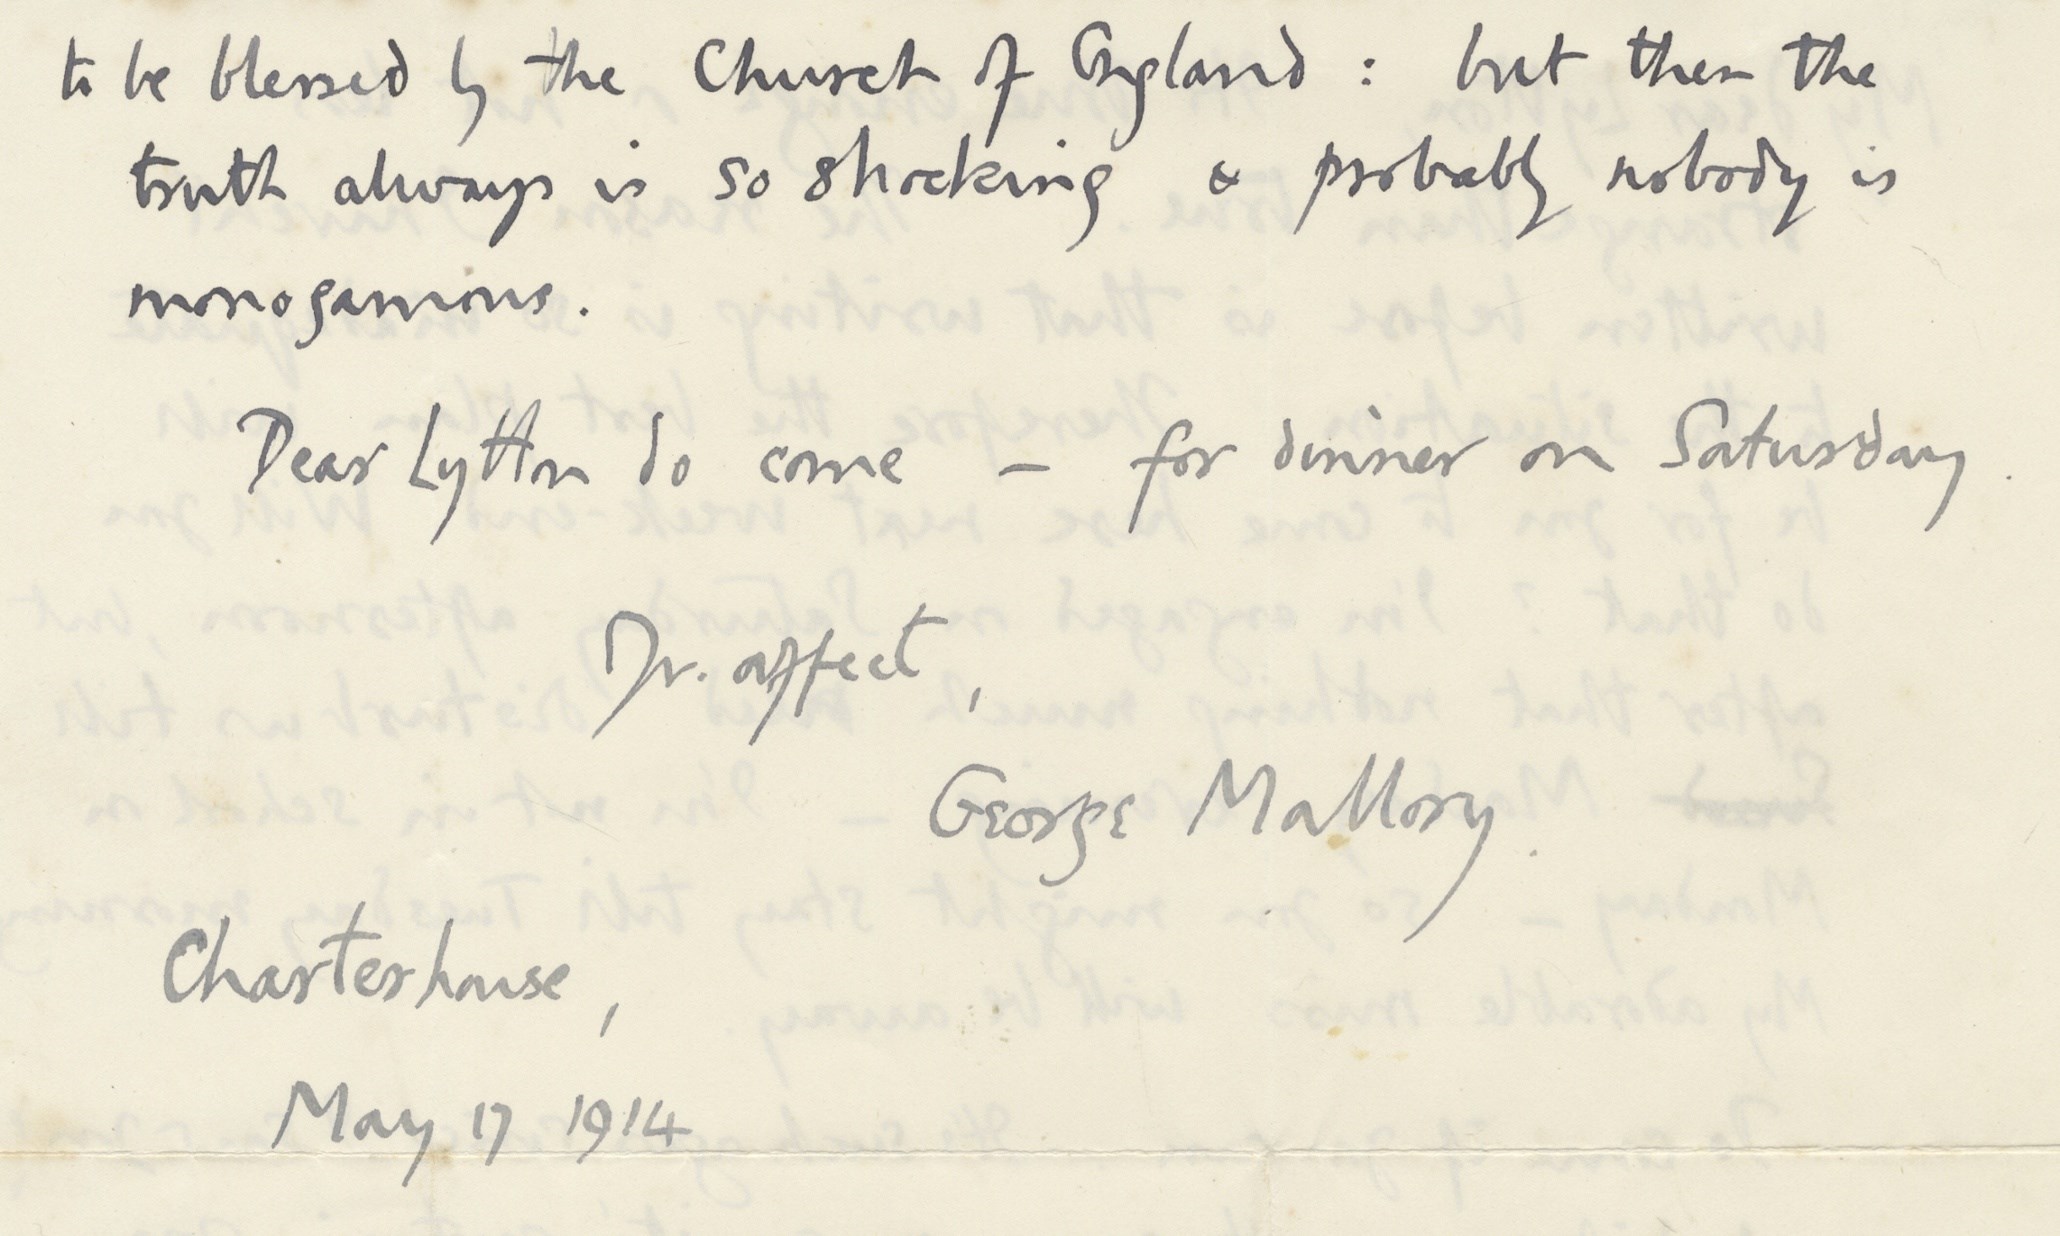 to be blessed by the Church of England : but then the
truth always is so shocking & probably nobody is
monogamous.
Dear Lytton do come – for dinner on Saturday.
Yr. affect,
George Mallory.
Charterhouse,
May 17 1914